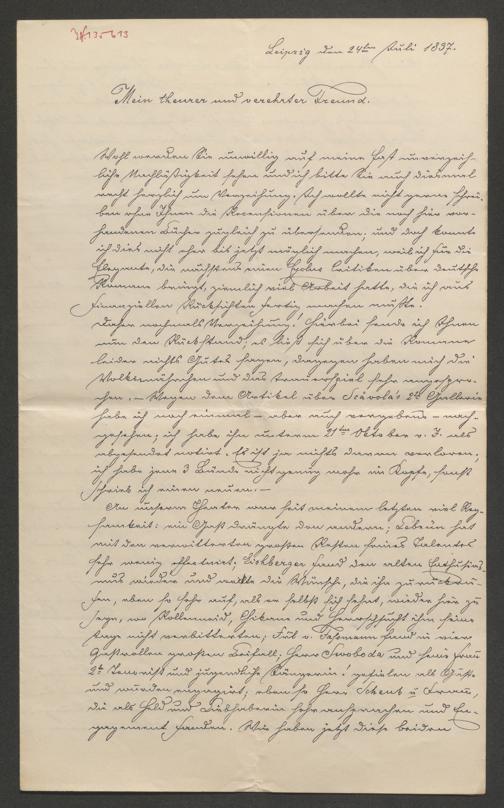 Leipzig den 24ten Juli 1837.
Mein theurer und verehrter Freund.
Wohl werden Sie unwillig auf meine fast unverzeih-
liche Nachläßigkeit sehen und ich bitte Sie auch diesmal
recht herzlich um Verzeihung. Ich wollte nicht gerne schrei-
ben ohne Ihnen die Recensionen über die noch hier vor-
handenen Bücher zugleich zu übersenden; und doch konnte
ich dies nicht eher bis jetzt möglich machen, weil ich für die
Elegante, die nächstens einen Cyclus Critiken über deutsche
Romane bringt, ziemlich viel Arbeit hatte, die ich aus
finanziellen Rücksichten fertig machen mußte.
Daher nochmals Verzeihung. Hierbei sende ich Ihnen
nun den Rückstand, es läßt sich über die Romane
leider nichts Gutes sagen, dagegen haben mich die
Volksmährchen und das Trauerspiel sehr angespro-
chen. – Wegen dem Artikel über Scävola's 2te Gallerie
habe ich noch einmal – aber auch vergebens – nach-
gesehen; ich habe ihn unterm 21ten Oktober v. J. als
abgesendet notirt. Es ist ja nichts daran verloren;
ich habe jene 3 Bände nicht genug mehr im Kopfe, sonst
schrieb ich einen neuen. –
An unserm Theater war seit meinem letzten viel Reg-
samkeit: ein Gast drängte den andern; Lebrün hat
mit den verwitterten großen Resten seines Talentes
sehr wenig effectuirt; Eichberger fand den alten Enthusias-
mus wieder und die Wünsche, die ihn zurückru-
fen, eben so sehr auf, als er selbst sich sehnt, wieder hier zu
seyn, wo Rollenneid, Chikane und Herrschsucht ihm seine
Tage nicht verbitterten; Frl v. Faßmann fand in vier
Gastrollen großen Beifall. Herr Swoboda und seine Frau
2te Tenorist und jugendliche Sängerin: gefielen als Gäste
und wurden engagirt; eben so Herr Schenk u Frau,
die als Held und Liebhaberin sehr ansprachen und En-
gagement fanden. Wir haben jetzt diese beiden